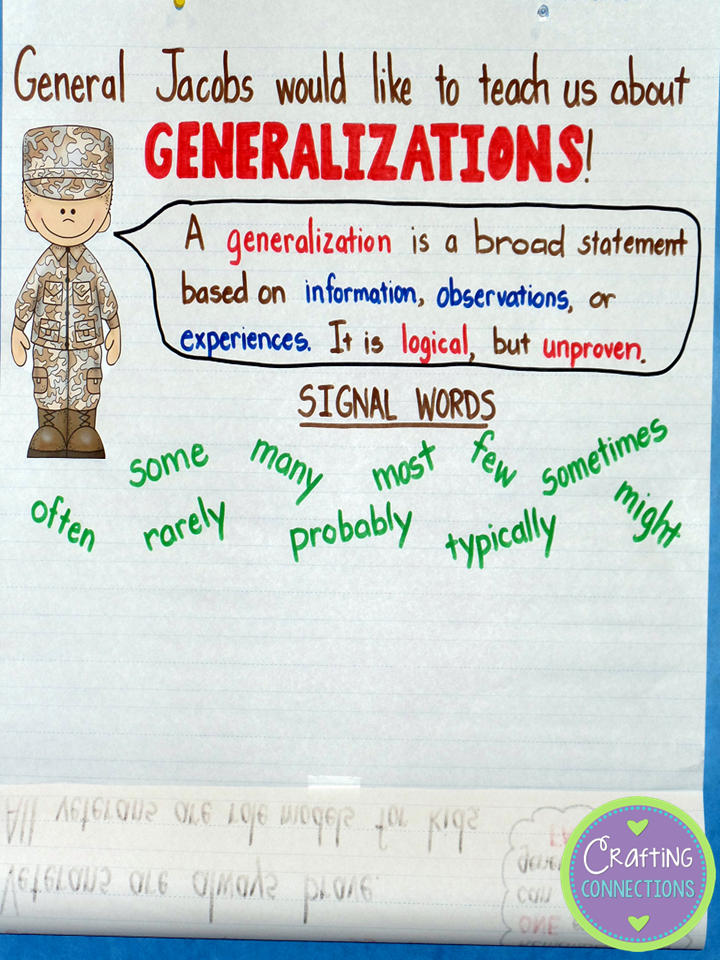 General Jacobs would like to teach us about
GENERALIZATIONS!
A generalization is a broad statement
based on information, observations, or
experiences. It is logical, but unproven.
SIGNAL WORDS
some many most few sometimes
often rarely probably typically might
All veterans are role models for kids
Veterans are always brave.
gene
can
ONE
CRAFTING
CONNECTIONS